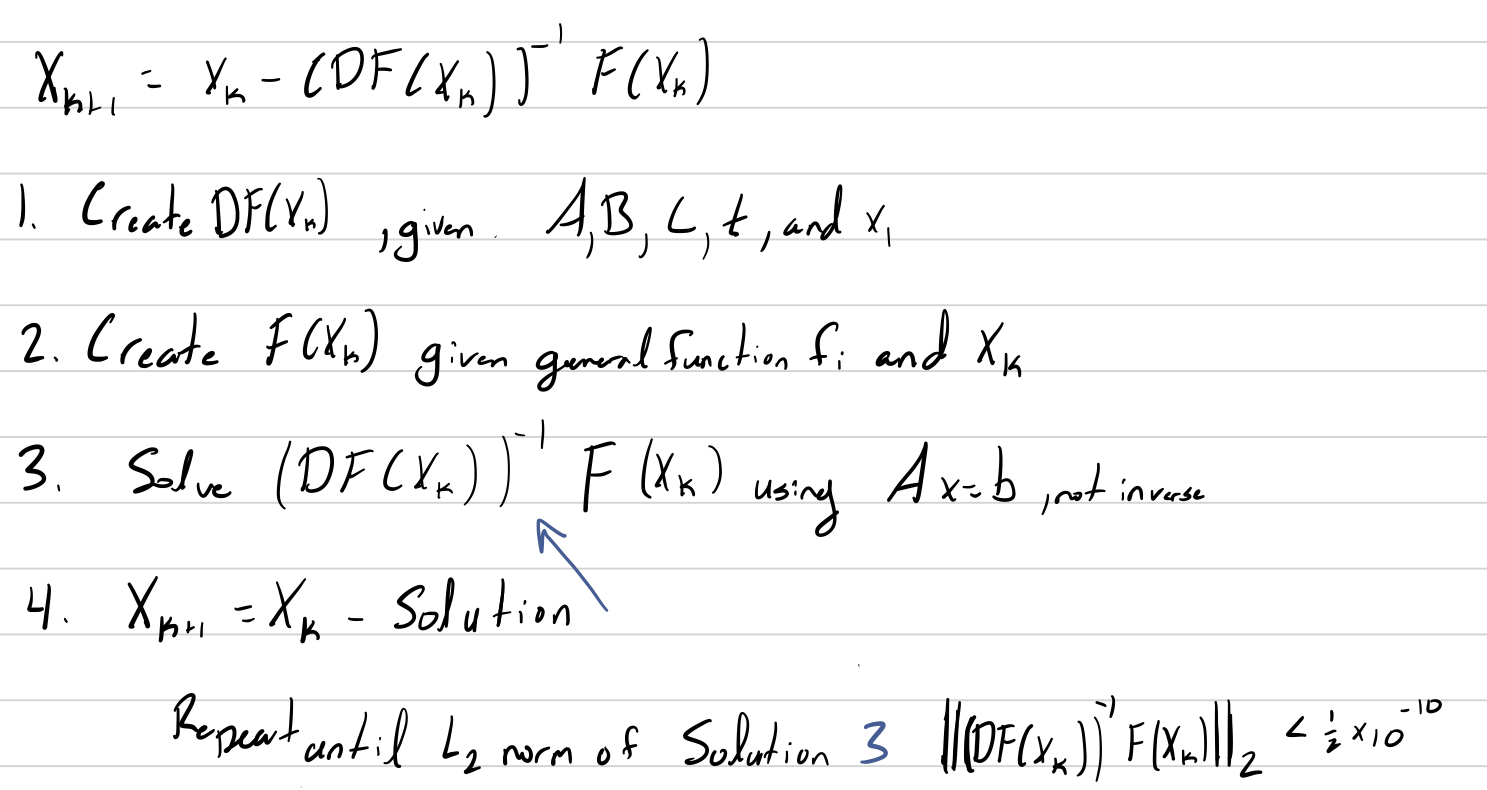 X_{k+1} = X_k - (DF(X_k))^{-1} F(X_k)
1. Create DF(X_k), given A, B, C, t, and x_1
2. Create F(X_k) given general function f_i and X_k
3. Solve (DF(X_k))^{-1} F(X_k) using Ax=b, not inverse
4. X_{k+1} = X_k - Solution
Repeat until L_2 norm of Solution 3 ||(DF(X_k))^{-1} F(X_k)||_2 < 1/2 x 10^{-10}